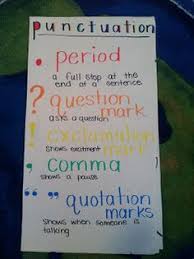 punctuation
. period
a full stop at the
end of a sentence
? question
mark
asks a question
! exclamation
shows excitement mark
, comma
shows a pause
“ ” quotation
marks
shows when someone is
talking